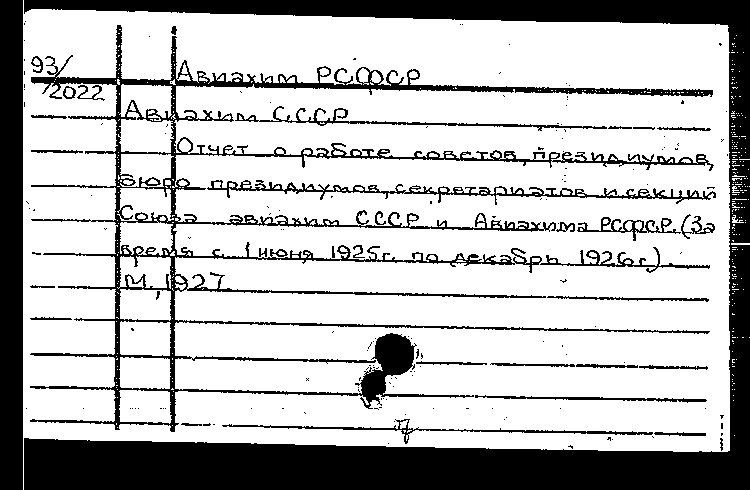 93/
/2022
Авиахим РСФСР
Авиахим СССР
Отчет о работе советов, президиумов,
бюро президиумов, секретариатов и секций
Союза авиахим СССР и Авиахима РСФСР. (За
время с 1 июня 1925г. по декабрь 1926г.).
М., 1927.